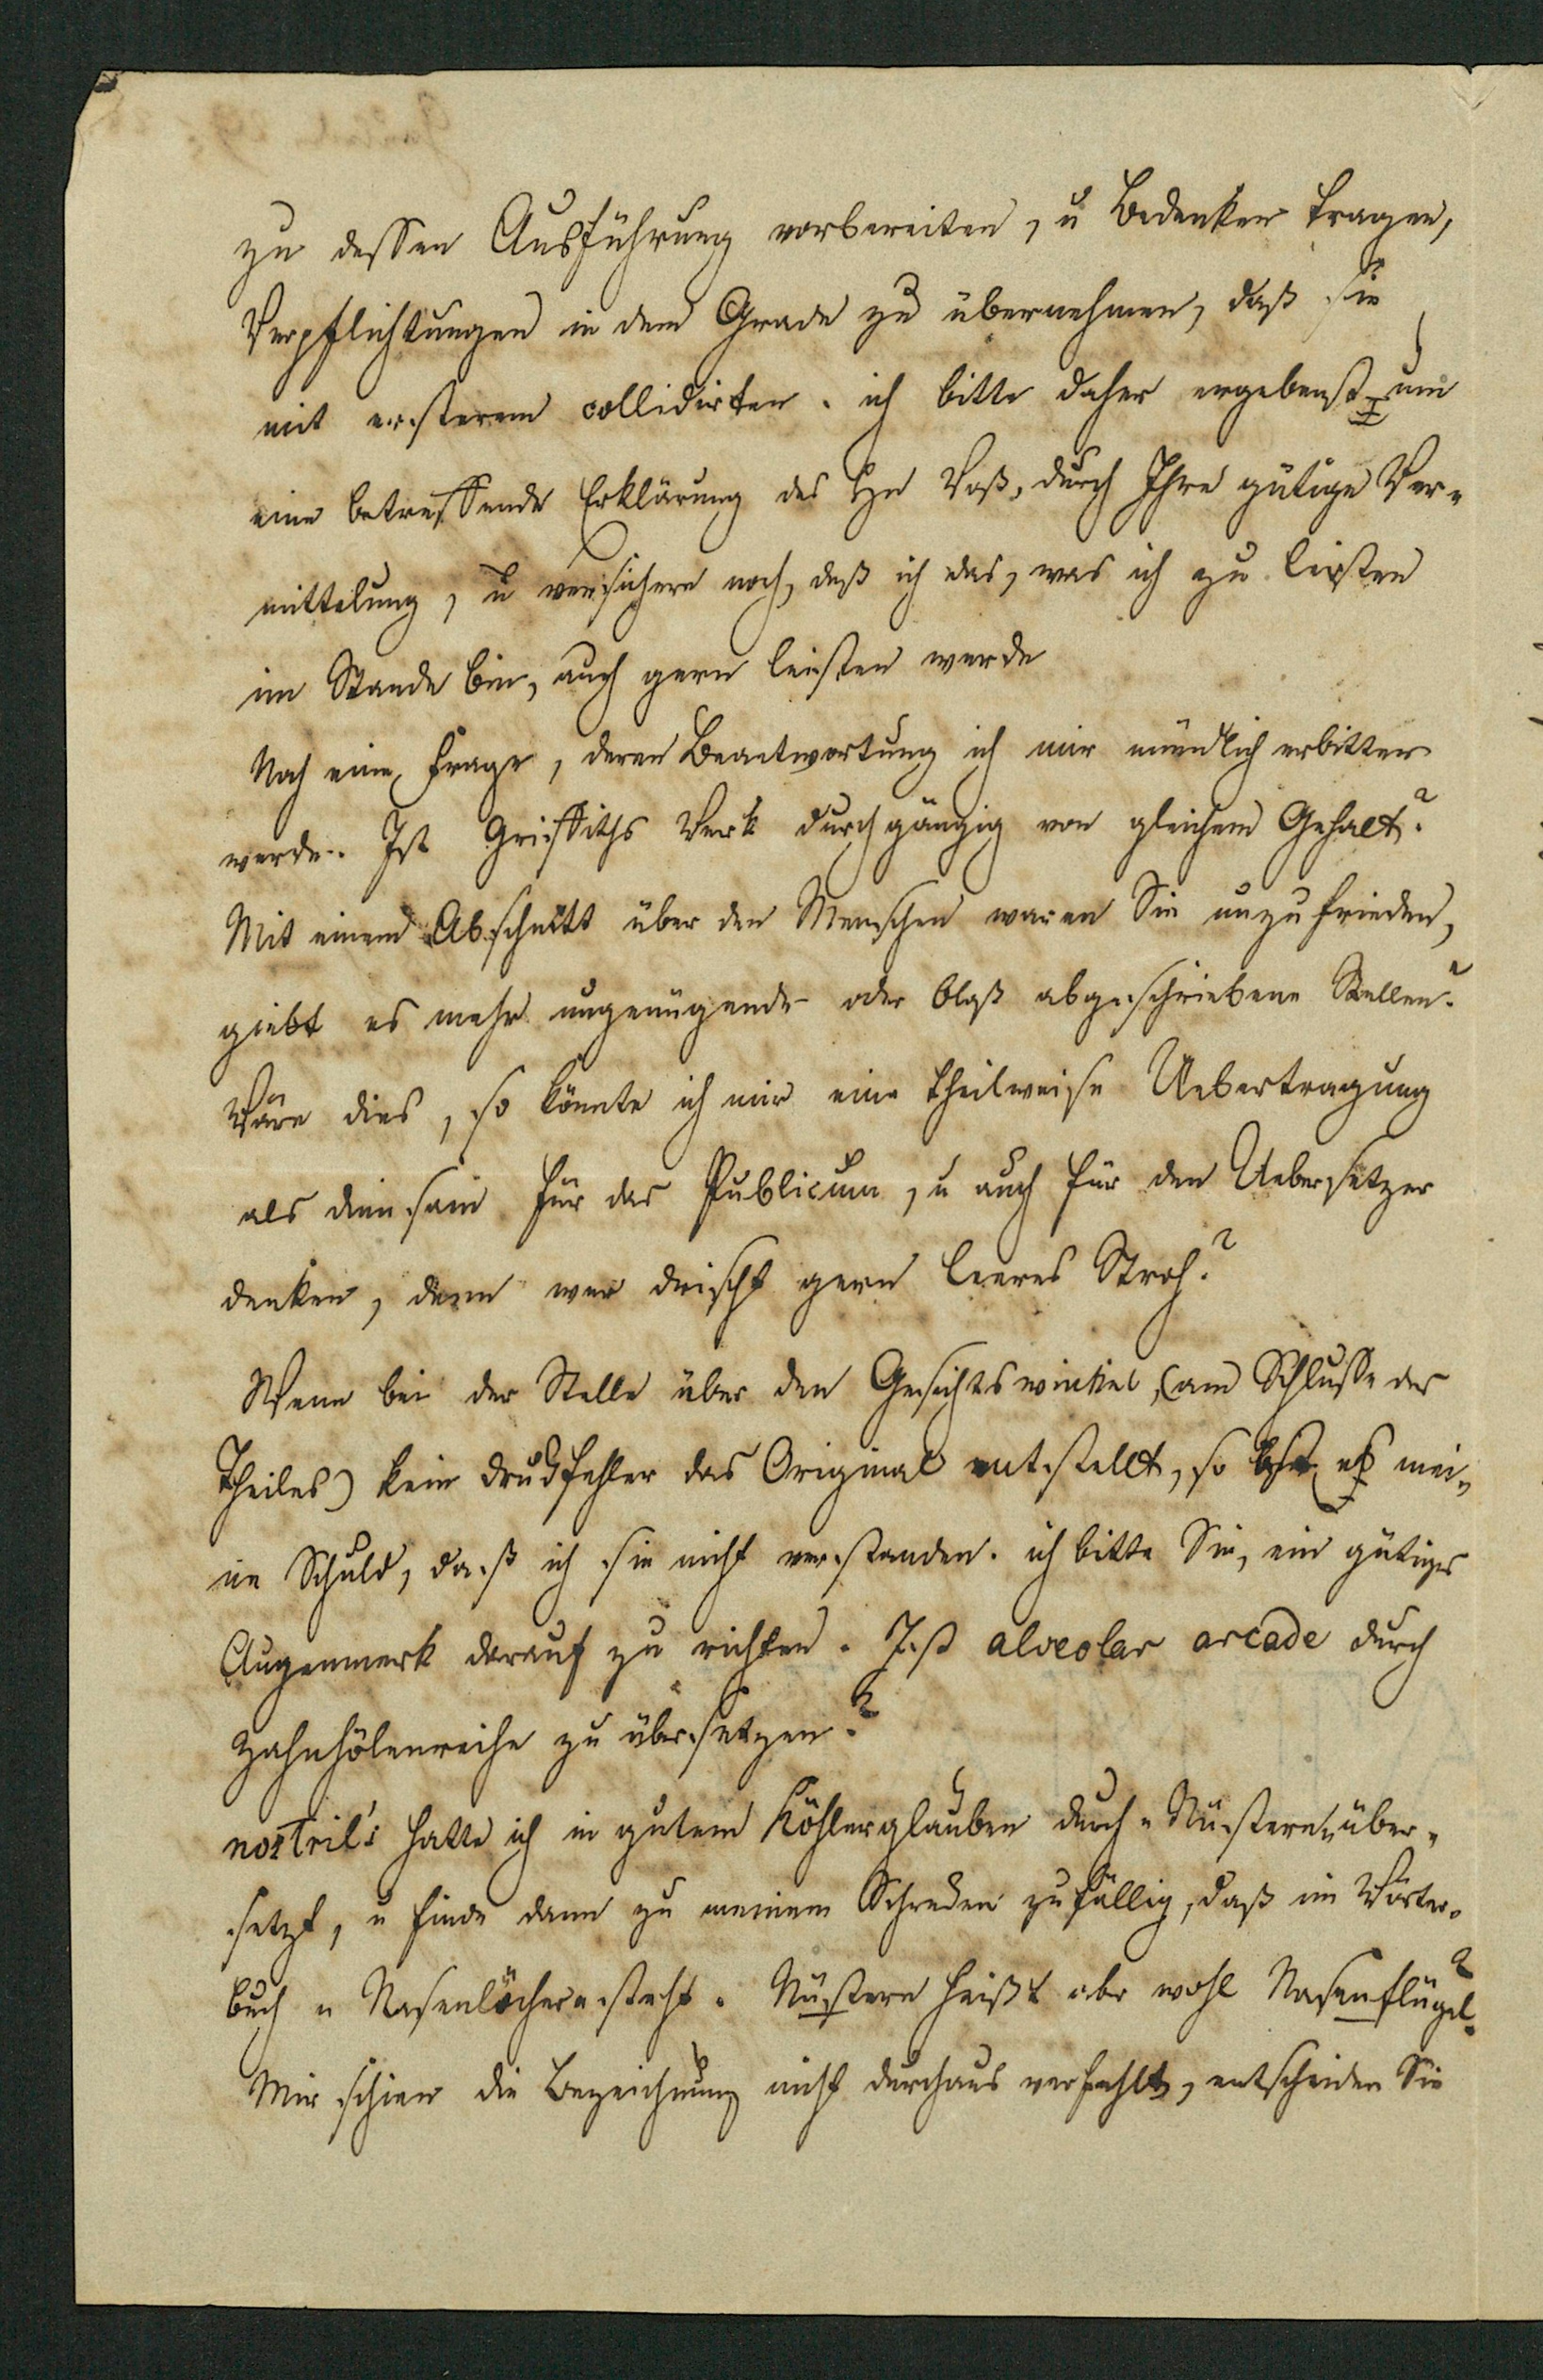 zu dessen Ausführung vorbereiten, u Bedenken tragen,
Verpflichtungen in dem Grade zu übernehmen, daß sie
mit ersterem collidirten. ich bitte daher ergebenst um
eine betreffende Erklärung des Hn Voß, durch Ihre gütige Ver-
mittelung, u versichere noch, daß ich das, was ich zu leisten
im Stande bin, auch gern leisten werde
Noch eine Frage, deren Beantwortung ich mir mündlich erbitten
werde. Ist Griffiths Werk durchgängig von gleichem Gehalt?
Mit einem Abschnitt über den Menschen waren Sie unzufrieden,
giebt es mehr ungenügende oder bloß abgeschriebene Stellen?
Wäre dies, so könnte ich mir eine theilweise Uebertragung
als diensam für das Publicum, u auch für den Uebersetzer
denken, denn wer drischt gern leeres Stroh?
Wenn bei der Stelle über den Gesichtswinkel, (am Schlusse des
Theiles) kein Druckfehler das Original entstellt, so ist es mei-
ne Schuld, daß ich sie nicht verstanden. ich bitte Sie, ein gütiges
Augenmerk darauf zu richten. Ist alveolar arcade durch
Zahnhölenreihe zu übersetzen?
nostril's hatte ich in gutem Köhlerglauben durch "Nüstern" über-
setzt, u finde dann zu meinem Schrecken zufällig, daß im Wörter-
buch "Nasenlöcher" steht. Nüstern heißt aber wohl Nasenflügel?
Mir schien die Bezeichnung nicht durchaus verfehlt, entscheiden Sie